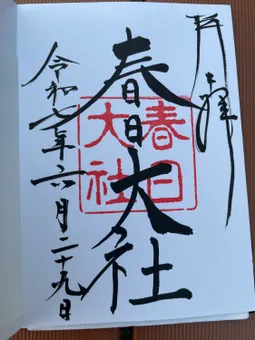 春日大社
春日
大社
令和七年六月二十九日